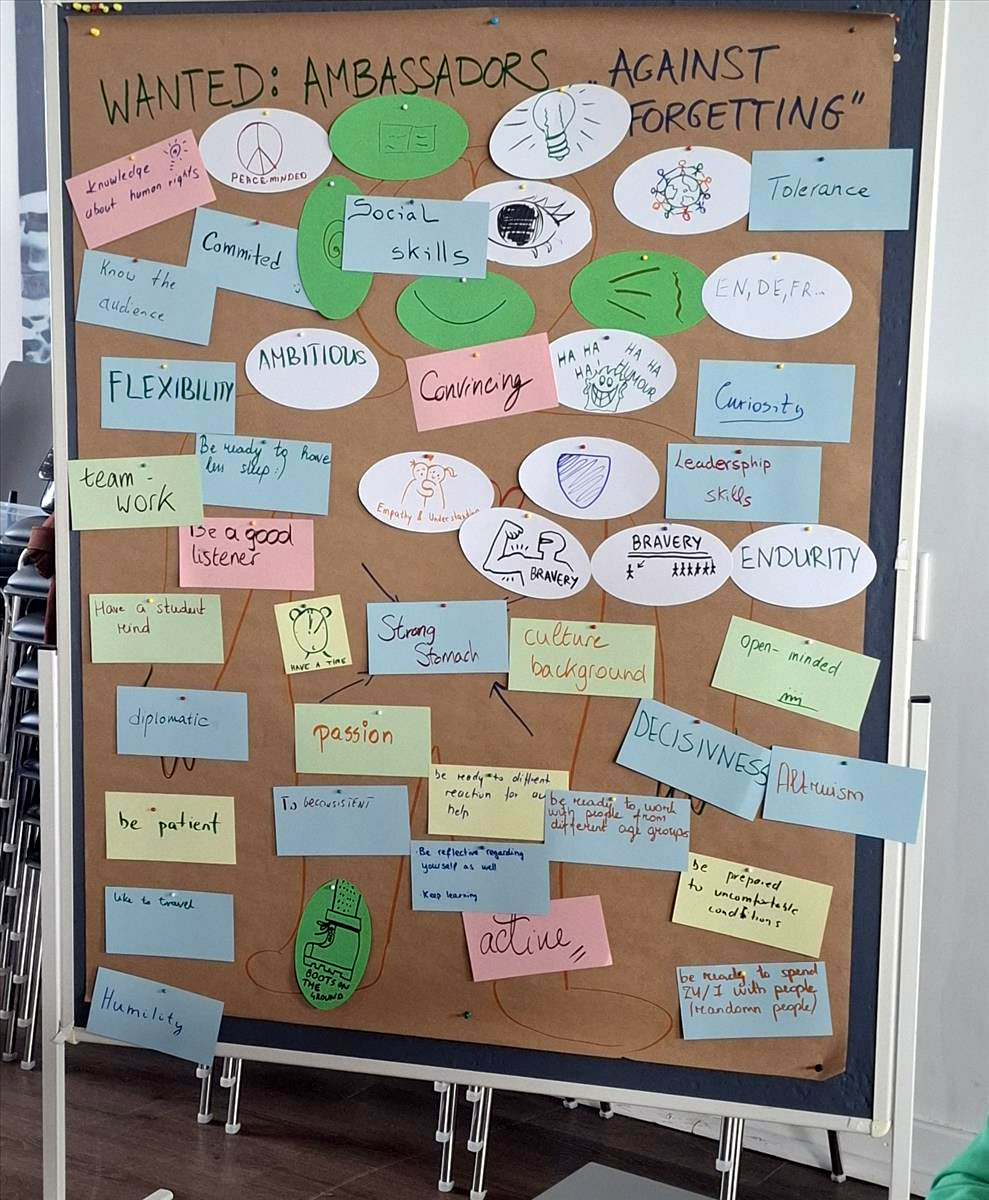 WANTED: AMBASSADORS „AGAINST
FORGETTING"
Knowledge
about human rights
PEACE-MINDED
Tolerance
Social
skills
Commited
Know the
audience
EN, DE, FR...
AMBITIOUS
FLEXIBILITY
Convincing
HA HA
HA!
HA HA
HUMOUR
Curiosity
Be ready to have
less sleep :)
team-
work
Empathy & Understanding
Leadership
skills
Be a good
listener
BRAVERY
BRAVERY
ENDURITY
Have a student
mind
HAVE A TIME
Strong
Stomach
culture
background
open-minded
diplomatic
passion
DECISIVNESS
Altruism
be patient
TO BE CONSISTENT
be ready to different
reaction for our
help
be ready to work
with people from
different age groups
Be reflective regarding
yourself as well
Keep learning
be prepared
to uncomfortable
conditions
like to travel
BOOTS ON
THE
GROUND
active
be ready to spend
24/7 with people
(randomn people)
Humility